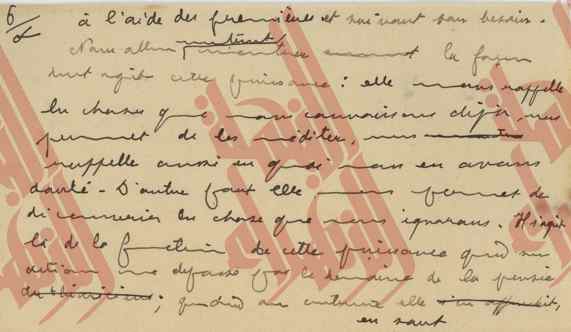 6
à l'aide des premières et suivant son besoin.
Nous allons maintenant la façon
dont agit cette puissance : elle nous rappelle
les choses que nous connaissons déjà, nous
permet de les méditer, nous
rappelle aussi en quoi nous en avons
douté. D'autre part elle nous permet de
les choses que nous ignorons. Il s'agit
là de la fonction de cette puissance quand son
action ne dépasse pas le domaine de la pensée
; quand au contraire elle
en sort